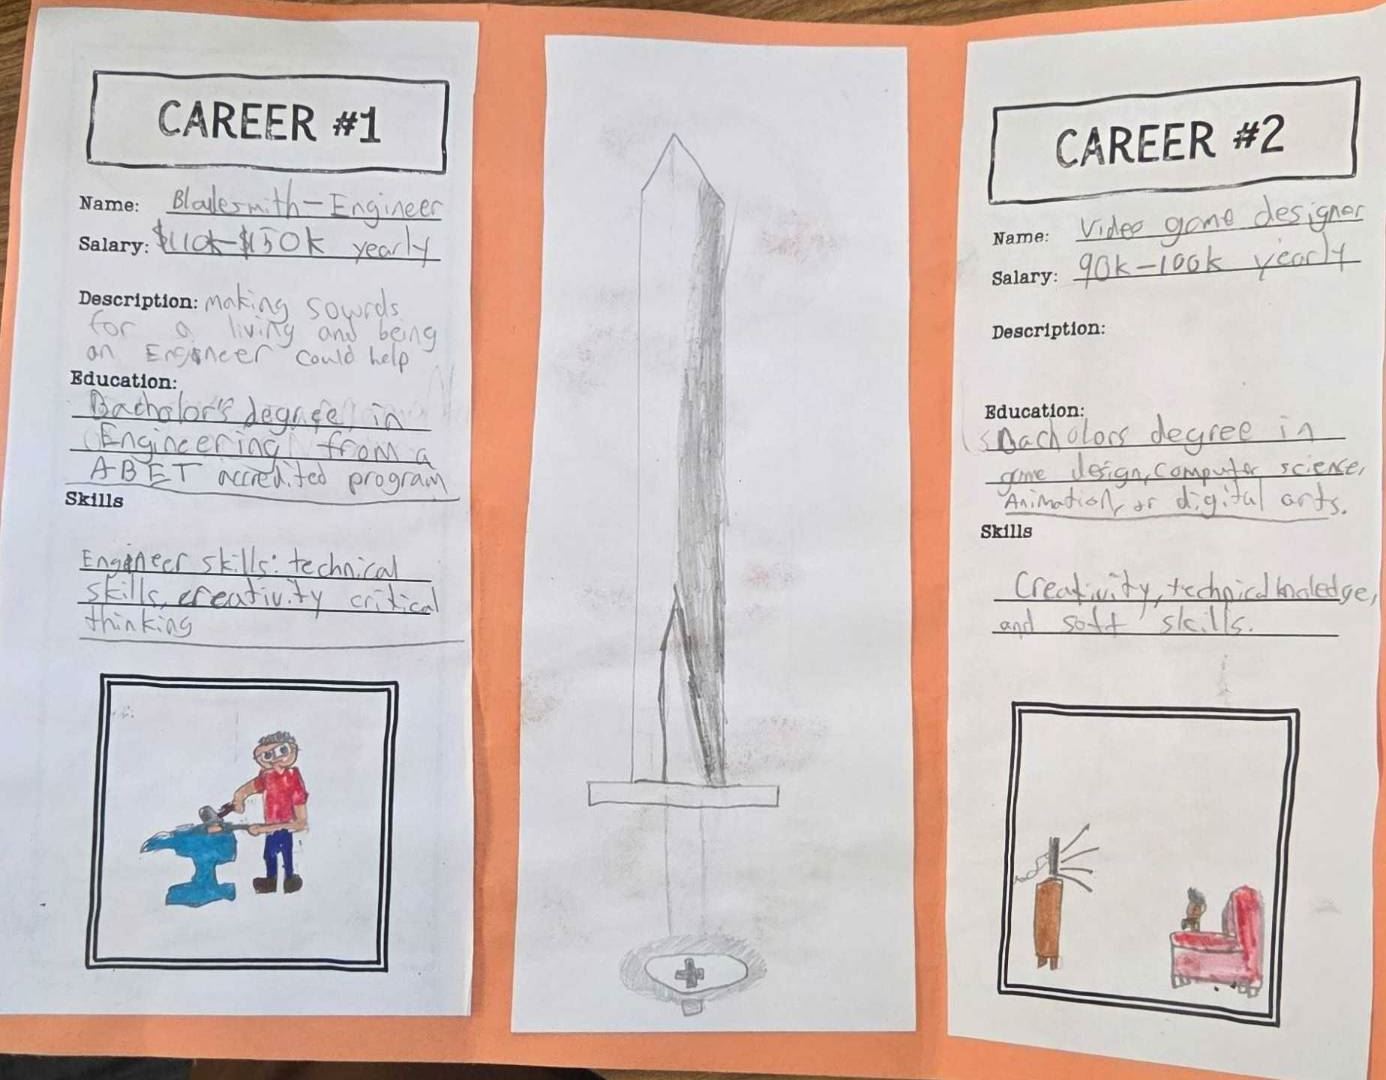 CAREER #1
Name: Bladesmith-Engineer
Salary: $110k-$150k yearly
Description: making sowrds
for a living and being
an Engineer could help
Education:
Bacholor's degree in
Engineering from a
ABET accredited program
Skills
Engeneer skills: technical
skills, creativity critical
thinking
CAREER #2
Name: Video game designer
Salary: 90k-100k yearly
Description:
Education:
Bacholors degree in
game design, computer science,
Animation, or digital arts.
Skills
Creativity, technical knoledge,
and soft skills.